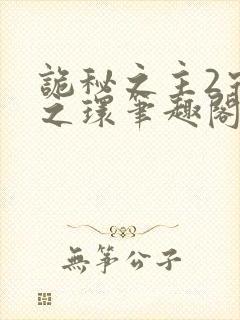 詭秘之主2
之環筆趣閣
無箏公子